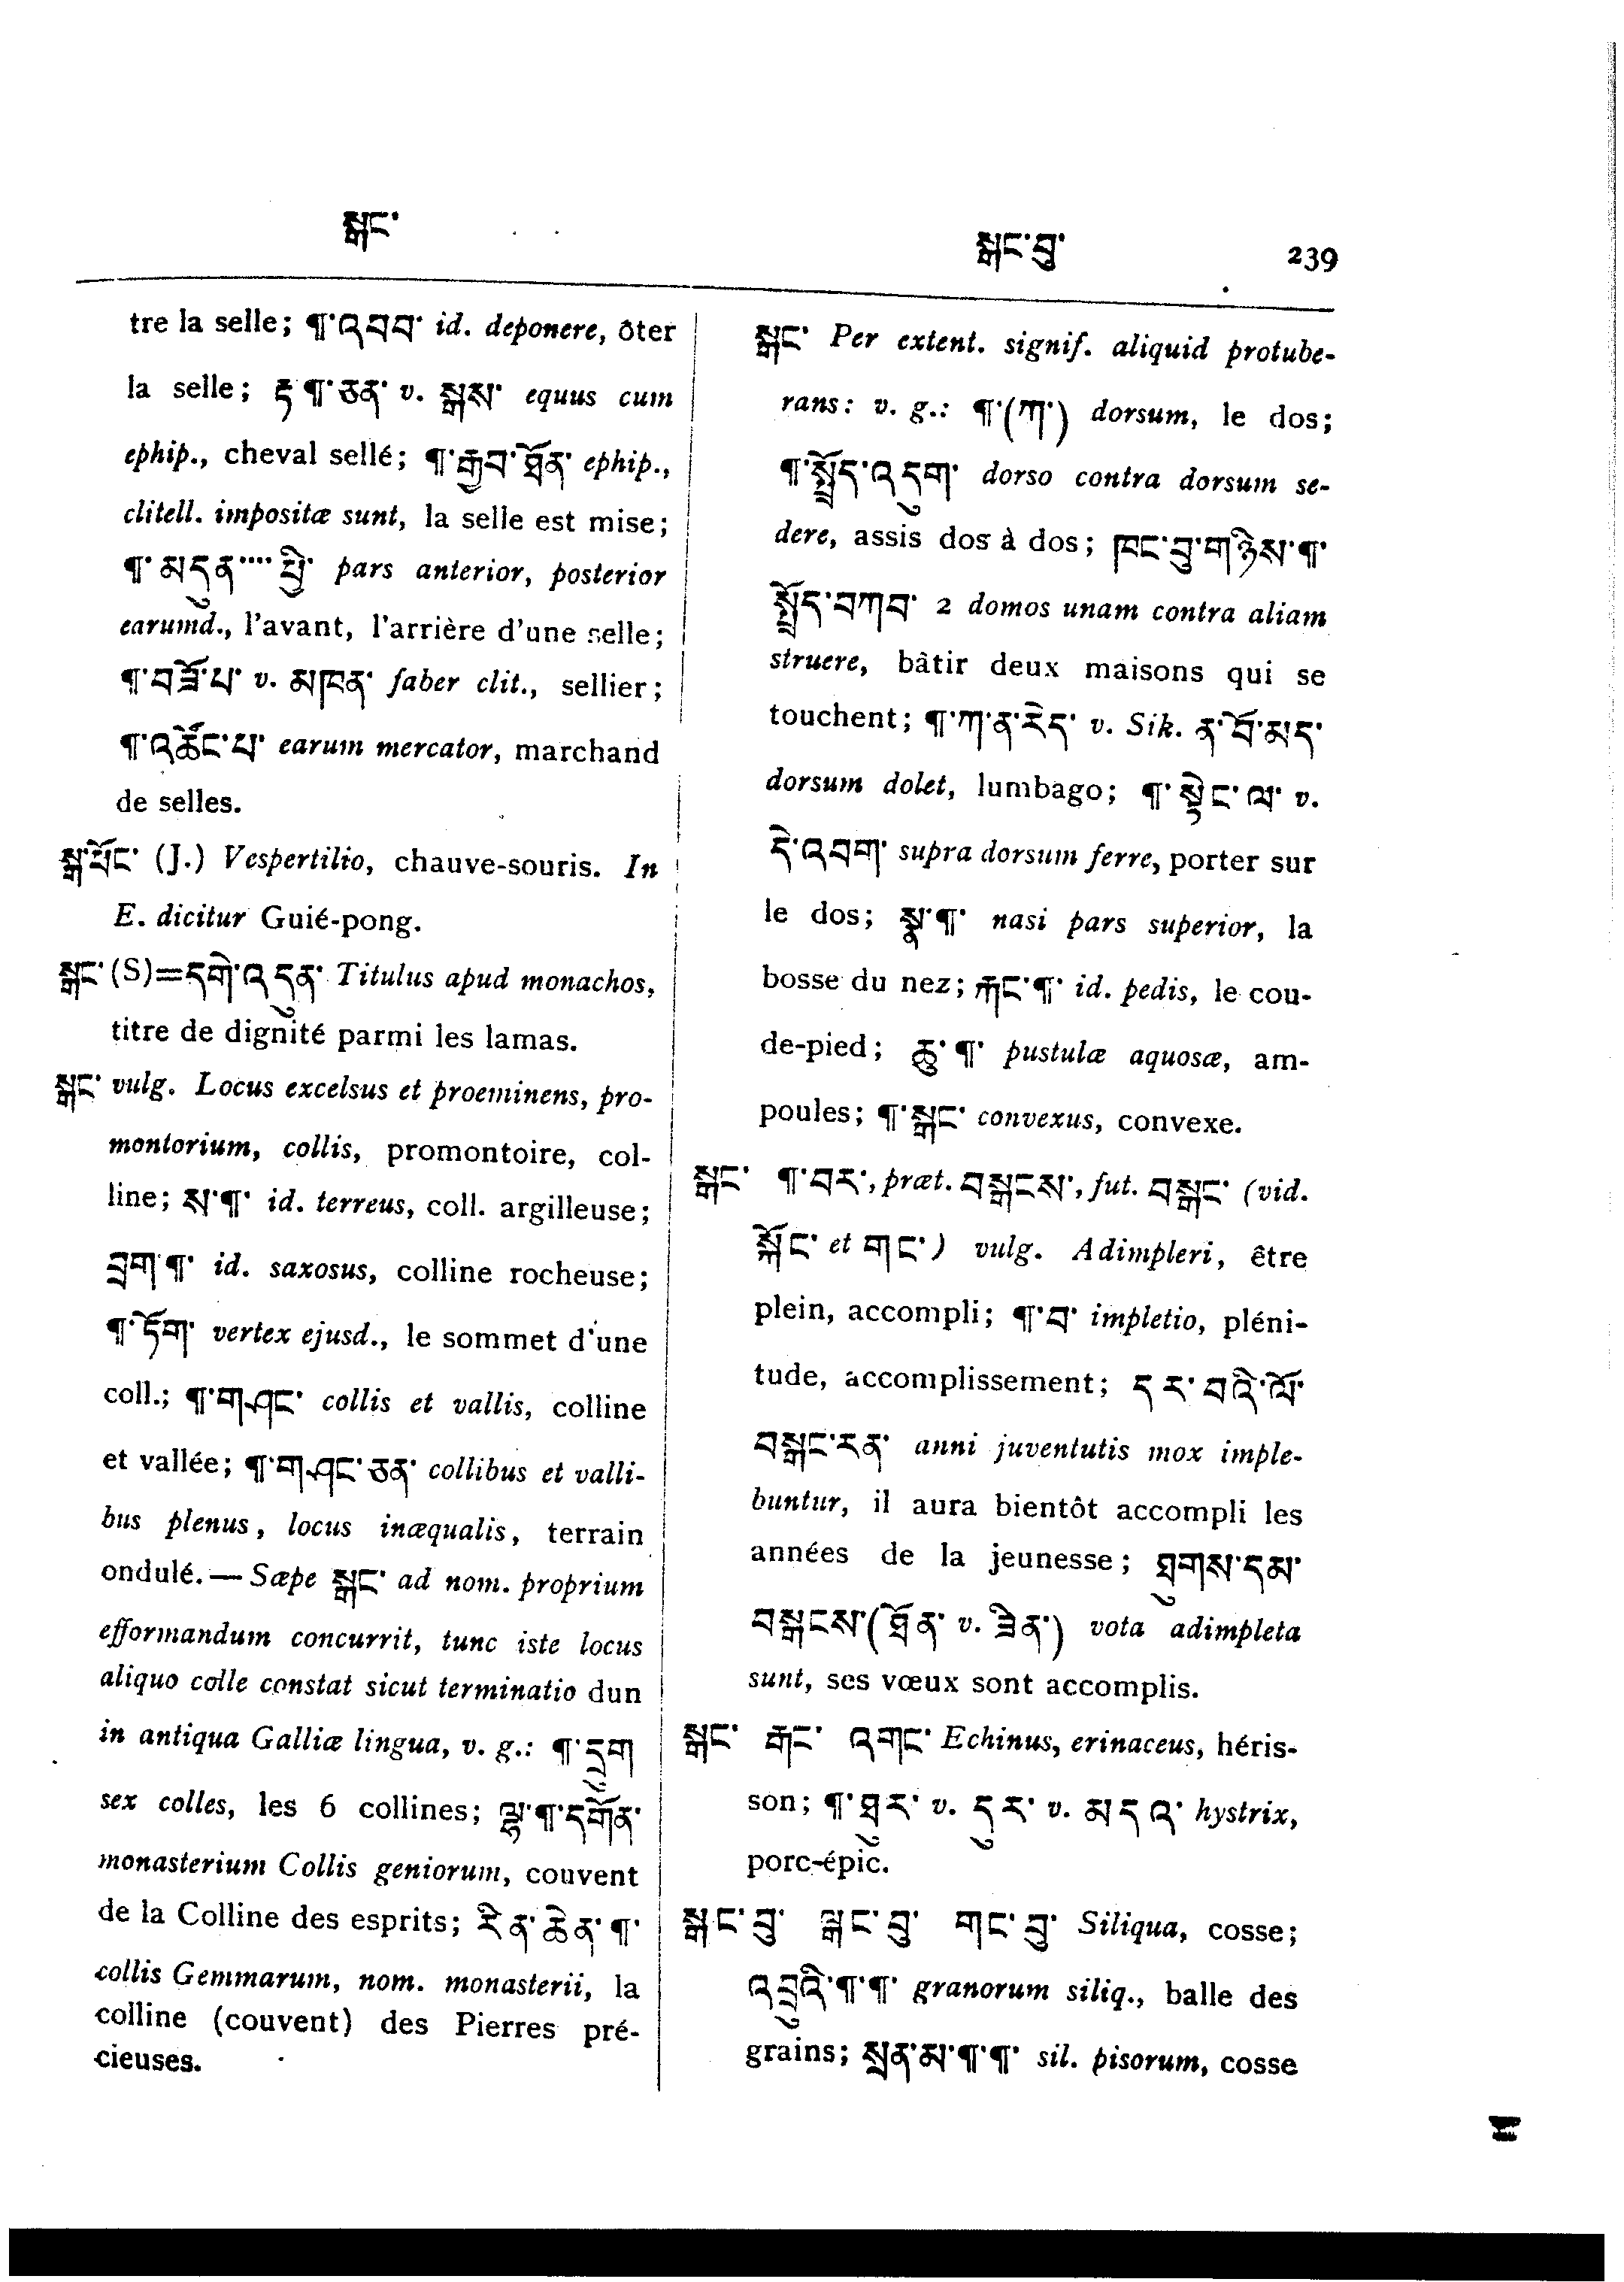 སྒང་
སྒང་བུ་ 239
tre la selle; ¶་འབབ་ id. deponere, ôter
la selle; རྟ་¶་ཅན་ v. སྒས་ equus cum
ephip., cheval sellé; ¶་རྒྱབ་ཐོན་ ephip.,
clitell. impositæ sunt, la selle est mise;
¶་མདུན་ .... ཕྱི་ pars anterior, posterior
earumd., l'avant, l'arrière d'une selle;
¶་བཟོ་པ་ v. མཁན་ faber clit., sellier;
¶་འཚོང་པ་ earum mercator, marchand
de selles.
སྒ་ཕོང་ (J.) Vespertilio, chauve-souris. In
E. dicitur Guié-pong.
སྒང་ (S)=དགེ་འདུན་ Titulus apud monachos,
titre de dignité parmi les lamas.
སྒང་ vulg. Locus excelsus et proeminens, pro-
montorium, collis, promontoire, col-
line; ས་¶་ id. terreus, coll. argilleuse;
བྲག་¶་ id. saxosus, colline rocheuse;
¶་ཏོག་ vertex ejusd., le sommet d'une
coll.; ¶་གཤང་ collis et vallis, colline
et vallée; ¶་གཤང་ཅན་ collibus et valli-
bus plenus, locus inæqualis, terrain
ondulé.— Sæpe སྒང་ ad nom. proprium
efformandum concurrit, tunc iste locus
aliquo colle constat sicut terminatio dun
in antiqua Galliæ lingua, v. g.: ¶་དྲུག
sex colles, les 6 collines; ལྷ་¶་དགོན་
monasterium Collis geniorum, couvent
de la Colline des esprits; རིན་ཆེན་¶་
collis Gemmarum, nom. monasterii, la
colline (couvent) des Pierres pré-
cieuses.
སྒང་ Per extent. signif. aliquid protube-
rans: v. g.: ¶་(ཀ་) dorsum, le dos;
¶་སྤྲོད་འདུག་ dorso contra dorsum se-
dere, assis dos à dos; ཁང་བུ་གཉིས་¶་
སྤྲོད་བཀབ་ 2 domos unam contra aliam
struere, bâtir deux maisons qui se
touchent; ¶་ཀ་ན་རེད་ v. Sik. ན་བོ་མད་
dorsum dolet, lumbago; ¶་སྟེང་ལ་ v.
དེ་འབག་ supra dorsum ferre, porter sur
le dos; སྣ་¶་ nasi pars superior, la
bosse du nez; རྐང་¶་ id. pedis, le cou-
de-pied; ཆུ་¶་ pustulæ aquosæ, am-
poules; ¶་སྒང་ convexus, convexe.
སྒང་ ¶་བར་, præt. བསྒངས་, fut. བསྒང་ (vid.
སྐོང་ et གང་) vulg. Adimpleri, être
plein, accompli; ¶་བ་ impletio, pléni-
tude, accomplissement; དར་བའི་ལོ་
བསྒང་རན་ anni juventutis mox imple-
buntur, il aura bientôt accompli les
années de la jeunesse; ཐུགས་དམ་
བསྒངས་(ཐོན་ v. ཟིན་) vota adimpleta
sunt, ses vœux sont accomplis.
སྒང་ རྒང་ འགང་ Echinus, erinaceus, héris-
son; ¶་ཐུར་ v. དུར་ v. མདའ་ hystrix,
porc-épic.
སྒང་བུ་ ལྒང་བུ་ གང་བུ་ Siliqua, cosse;
འབྲུའི་¶་¶་ granorum siliq., balle des
grains; སྲན་མ་¶་¶་ sil. pisorum, cosse